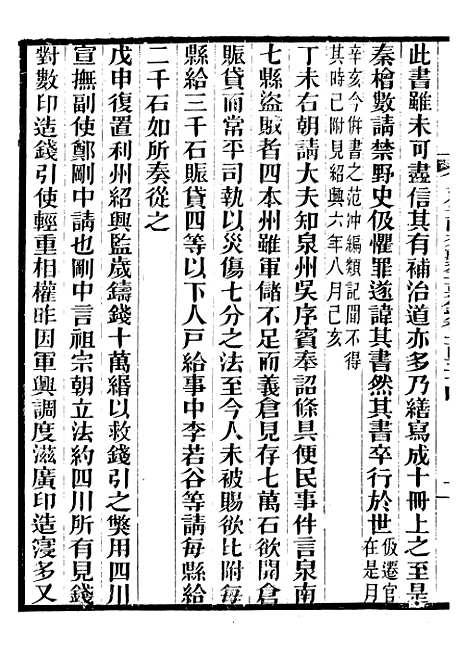 此書雖未可盡信其有補治道亦多乃繕寫成十冊上之至是
秦檜數請禁野史伋懼罪遂諱其書然其書卒行於世伋遷官在是月
辛亥今併書之范沖編類記聞不得其時已附見紹興六年八月己亥
丁未右朝請大夫知泉州吳序賓奉詔條具便民事件言泉南
七縣盜販者四本州雖軍儲不足而義倉見存七萬石欲開倉
賑貸而常平司執以災傷七分之法至今人未被賜欲比附每
縣給三千石賑貸四等以下人戶給事中李若谷等請每縣給
二千石如所奏從之
戊申復置利州紹興監歲鑄錢十萬緡以救錢引之獘用四川
宣撫副使鄭剛中請也剛中言祖宗朝立法約四川所有見錢
對數印造錢引使輕重相權昨因軍興調度滋廣印造寖多又